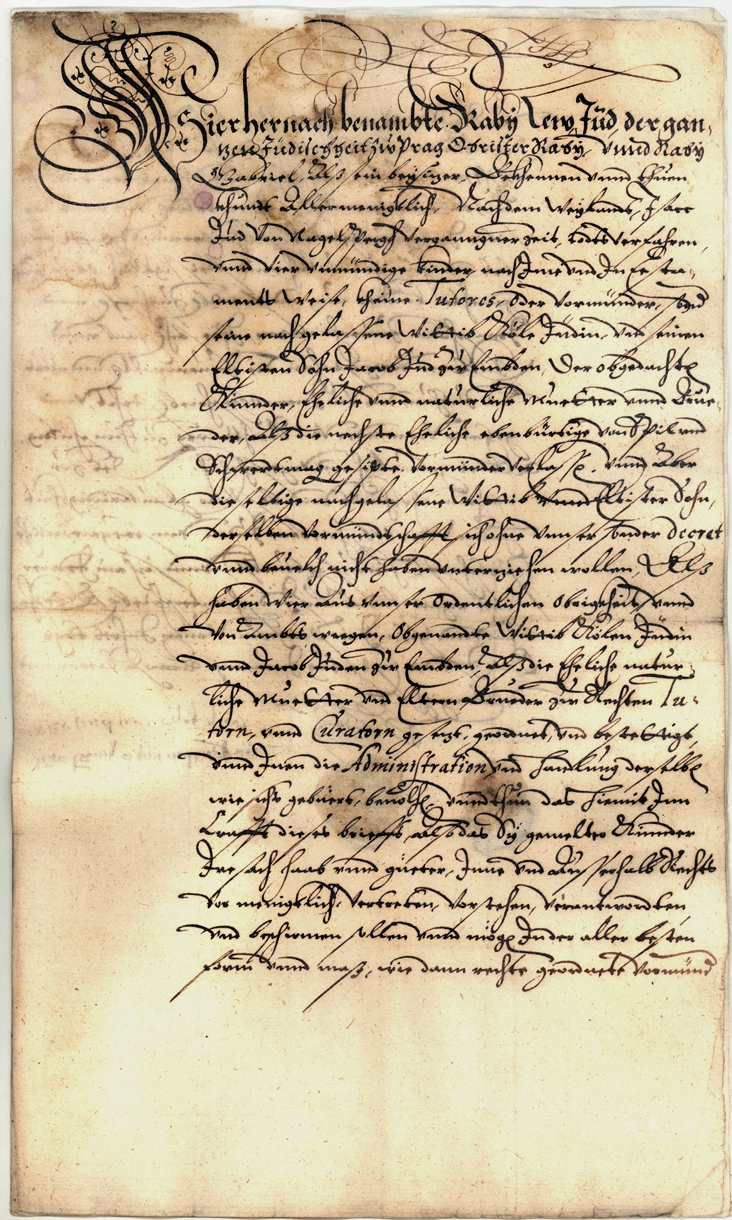 Wier hernach benambte Raby Lew Jud, der gan-
tzen Judischheit zu Prag Obrister Raby, vnnd Raby
Gabriel, Alß ein beysizer, Bekhennen vnnd thuen
khundt Allermenigklich, Nachdem Weylandt, Isacc
Jud von Nagelsperg vergangner Zeit, todts verfahren,
vnnd vier vnmündige kinder nach Ime vnd In Testa-
ments weise, kheine Tutores, oder Vormünder, sond
seine nachgelassene Wittib Röle Jüdin, vnd seinen
Eltisten Sohn Jacob Jud zu Embden, der obgedachte
Kinnder, Eheliche vnnd naturliche Muetter vnnd Brue-
der, Alß die nechste Eheliche ebenbürtige von Spil vnd
Schwerdtmag gesipte Vormünder verlassen, vnnd Aber
dieselbige nachgelassene Wittib vnnd Eltister Sohn,
derselben Vormundschafft sich ohne vnnser sonder decret
vnnd beuelch nicht haben vnterziehen wollen, Alß
haben Wier Aus vnnser Ordentlichen Obrigkheit, vnnd
von Ambts wegen, Obgenandte Wittib Rölen Jüdin
vnnd Jacob Juden zu Embden, Alß die Eheliche natur-
liche Muetter vnd Eltern Brueder zu Rechten Tu-
torn, vnnd Curatorn gesezt, geordnet, vnd bestettigt,
vnnd Inen die Administration vnd Handlung derselben
wie sichs gebüert, beuolhen, vnnd thun das hiemit Inn
Crafft dieses brieffs, Also das Sy gemelter Kinnder
Ire sach haab vnnd güeter, Inne vnd Ausserhalb Rechts
vor menigklich, vertretten, vorstehen, verantwordten
vnd beschirmen sollen vnnd mögen In der aller besten
form vnnd maß, wie dann rechte geordnete Vormünd